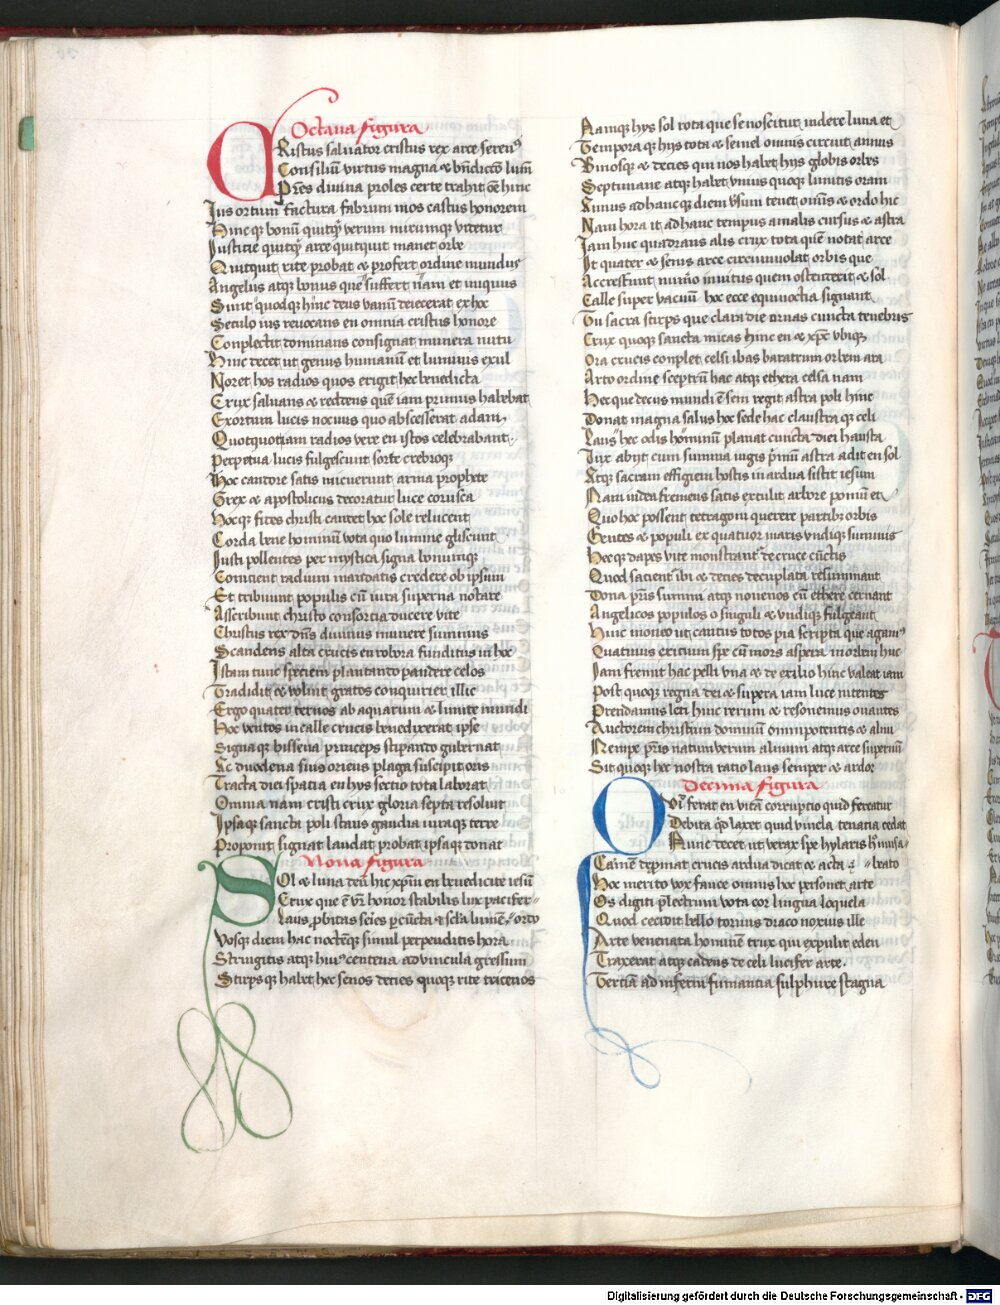 Octaua figura
CRistus saluator cristus rex arce serenꝰ
Consiliū virtus magna ⁊ bn̄dicc̄o lum̄
Pr̄es diuina proles certe trahit oē hinc
Jus ortum factura fabrum mos castus honorem
Hincqꝫ bonū quitqꝫ verum mirumqꝫ vitetur
Justicie quitqꝫ arce quitquit manet orbe
Quitquit rite probat ⁊ profert ordine mundus
Angelus atqꝫ bonus que suffert nam et iniquus
Sunt quodqꝫ hinc deus vanū deiecerat ex hoc
Seculo ius reuocans en omnia cristus honore
Conplectit dominans consignat munera nutu
Hinc decet ut genus humanū et luminis exul
Noret hos radios quos erigit hec benedicta
Crux saluans ⁊ reddens quē iam primus habebat
Exortum lucis nocuus quo abscesserat adam
Quotquot iam radios vere en istos celebrabant
Perpetua lucis fulgescunt sorte crebroqꝫ
Hoc cantore satis micuerunt arma prophete
Grex ⁊ apostolicus decoratur luce corusca
Hocqꝫ fides christi candet hoc sole relucent
Corda bene hominū vota quo lumine gliscunt
Justi pollentes per mystica signa bonumqꝫ
Comtent radium mandatis credere ob ipsum
Et tribuunt populis cū iura superna notare
Asscribunt christo consortia ducere vite
Christus rex dn̄s diuinus munere summus
Scandens alta crucis en robora funditus in hoc
Istam tunc speciem plantando pandere celos
Tradidit ⁊ voluit gratos conquirier illic
Ergo quater ternos ab aquarum ⁊ limite mundi
Hoc ventos in calle crucis benedixerat ipse
Signaqꝫ bissena princeps stipando gubernat
Ac duodena suis oriens plaga suscipit oris
Tracta diei spatia en hys sectio tota laborat
Omnia nam cristi crux gloria septa resoluit
Ipsaqꝫ sancta poli status gaudia iuraqꝫ terre
Proponit signat laudat probat ipsaqꝫ donat
Nona figura
SOl ⁊ luna deū hic xp̄m en benedicite iesū
Crux que ē vr̄i honor stabilis lux pacifer
Laus probitas speīes ꝑ cūcta ⁊ sc̄la lumē ordo
Vosqꝫ diem hac noctēqꝫ simul perpenditis hora
Stringitis atqꝫ hinc centena ad vincula gressum
Stirpsqꝫ habet hec senos decies quoqꝫ rite tricenos
Namqꝫ hys sol rota que se noscitur indere luna et
Temporaqꝫ hys tota ⁊ semel omnis circuit annus
Binosqꝫ ⁊ decies qui nos habet hys globis orbes
Septimane atqꝫ habet vnius quoqꝫ limitis oram
Annus ad hancqꝫ diem vsum tenet om̄is ⁊ ordo hic
Nam hora it ad hanc tempus amalis cursus ⁊ astra
Jam hinc quadrans alis crux tota quē notat arce
It quater ⁊ senis arce circumuolat orbis que
Accrescunt numo inuitus quem ostenderit ⁊ sol
Calle super vacuū hoc ecce equinoctia signant
Tu sacra stirps que clara die ornas cuncta tenebris
Crux quoqꝫ sancta micas hinc en ⁊ xp̄e vbiqꝫ
Ora crucis conplet celsi ibas baratrum orbem ara
Arto ordine sceptrū hac atqꝫ ethera celsa nam
Hecque decus mundi ē sem regit astra poli hinc
Donat magna salus hoc sede hac claustraqꝫ celi
Laus hec odis hominū planat cuncta diei hausta
Lux abyt cum summa iugis primū astra adit en sol
Atqꝫ sacram effigiem hostis in ardua sistit iesum
Nam iudea fremens satis extulit arbore pomū et
Quo hoc possent tetragoni querere partibꝫ orbis
Gentes ⁊ populi ex quatuor maris vndiqꝫ summis
Hecqꝫ dapes vite monstrant de cruce cunctis
Quod sacient ibi ⁊ denes decuplata resummant
Dona pr̄is summi atqꝫ nouenos cū ethere cernant
Angelicos populos o singuli ⁊ vndiqꝫ fulgeant
Hinc moneo ut cantus totos pia scripta que agamꝰ
Quatinus exitium spe cū mors aspera mortem huc
Jam fremit hac pelli vna ⁊ de exilio hinc valeat iam
Post quoqꝫ regna dei ⁊ supera iam luce nitentes
Prendamus leti hinc rerum ⁊ resonemus ouantes
Auctorem christum dominū omnipotentis ⁊ almi
Nempe pr̄is natum verum almum atqꝫ arce supernū
Sit quoqꝫ hec nostra ratio laus semper ⁊ ardor
Decima figura
OVi ferat en vitā corruptio quid fereatur
Debita qd laxet quid vincla tenacia cedat
Nunc decet ut verax spe hylaris
Carmē depinat crucis ardua dicat ⁊ acta brato
Hoc merito vox fauce omnis hoc personet arte
Os digiti plectrum vota cor lingua loquela
Quod cecidit bello toruus draco noxius ille
Arte venenata hominē trux qui expulit eden
Traxerat atqꝫ cadens de celi lucifer arce
Versiā ad inferni fumantia sulphure stagna
Digitalisierung gefördert durch die Deutsche Forschungsgemeinschaft - DFG